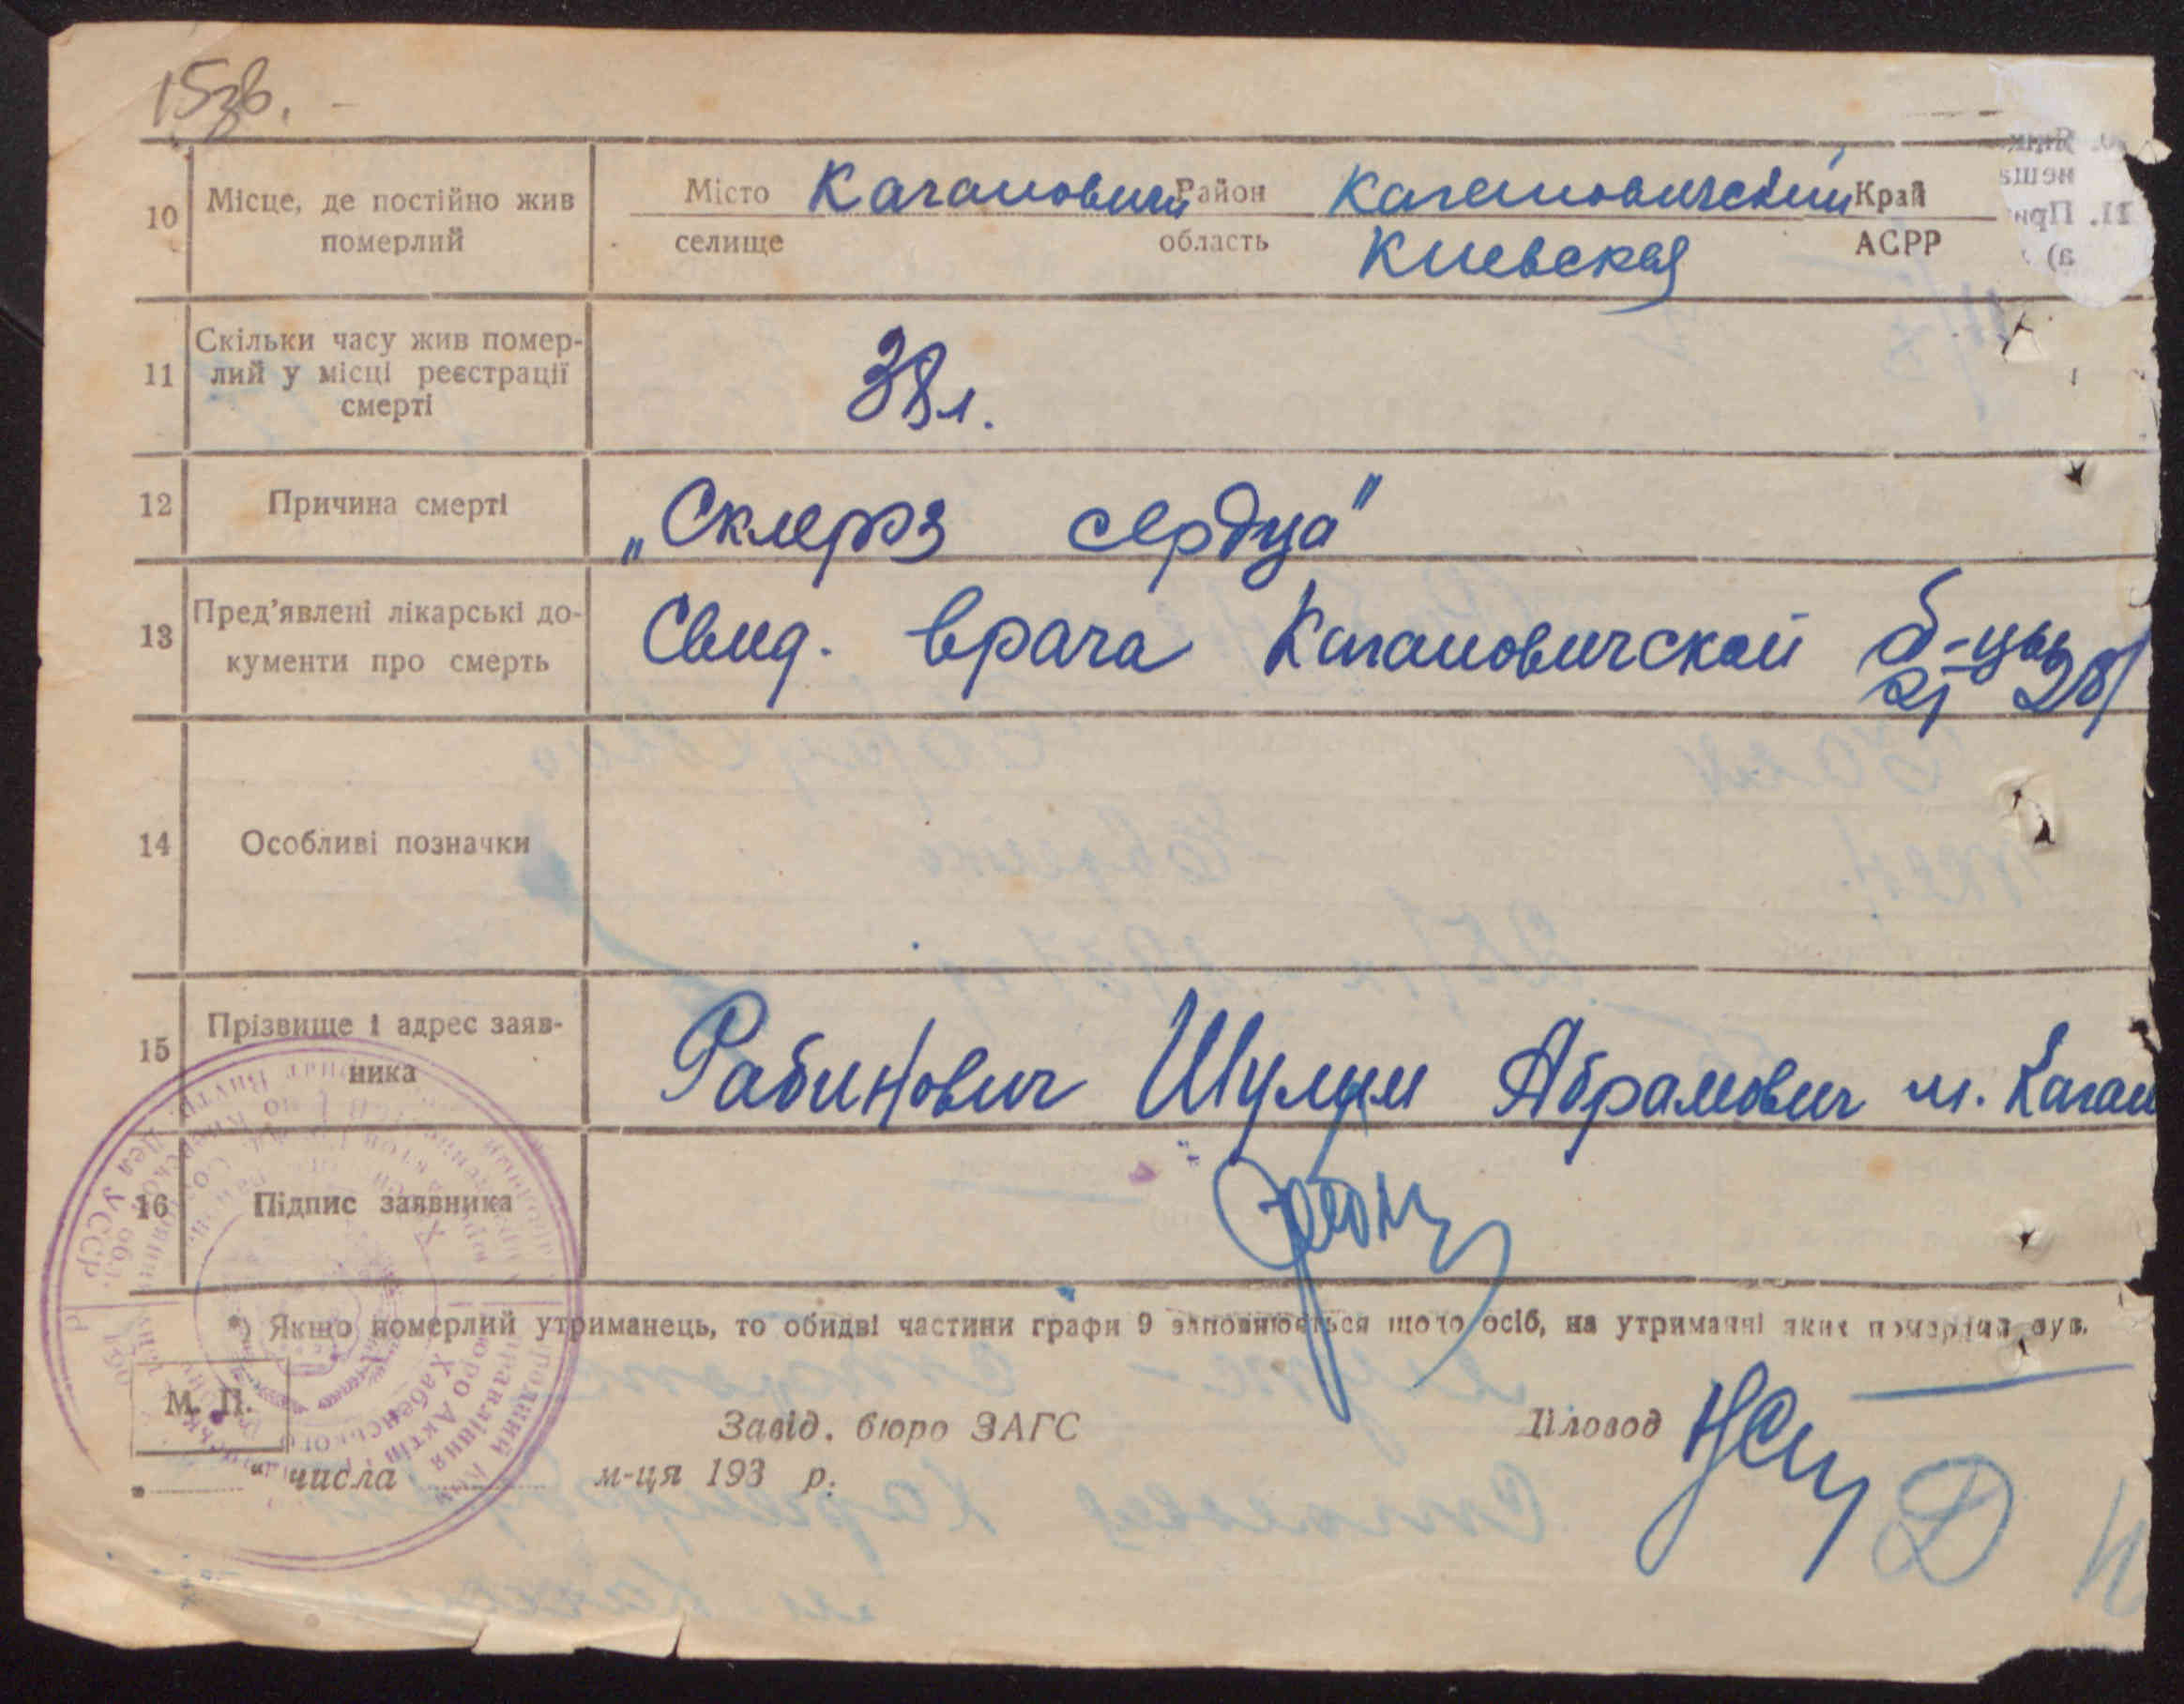 15зв.
10 Місце, де постійно жив померлий
Місто Каганович Район Кагановический Край
селище область Киевская АСРР
11 Скільки часу жив помер-
лий у місці реєстрації
смерті
38 л.
12 Причина смерті „Склероз сердца"
13 Пред'явлені лікарські до-
кументи про смерть
Свид. врача Кагановичской б-цы
14 Особливі позначки
15 Прізвище і адрес заяв-
ника
Рабинович Шулим Абрамович м. Каган
16 Підпис заявника
*) Якщо померлий утриманець, то обидві частини графи 9 заповнюються щодо осіб, на утриманні яких померлий був.
М. П.
Завід. бюро ЗАГС Діловод
„ " числа м-ця 193 р.